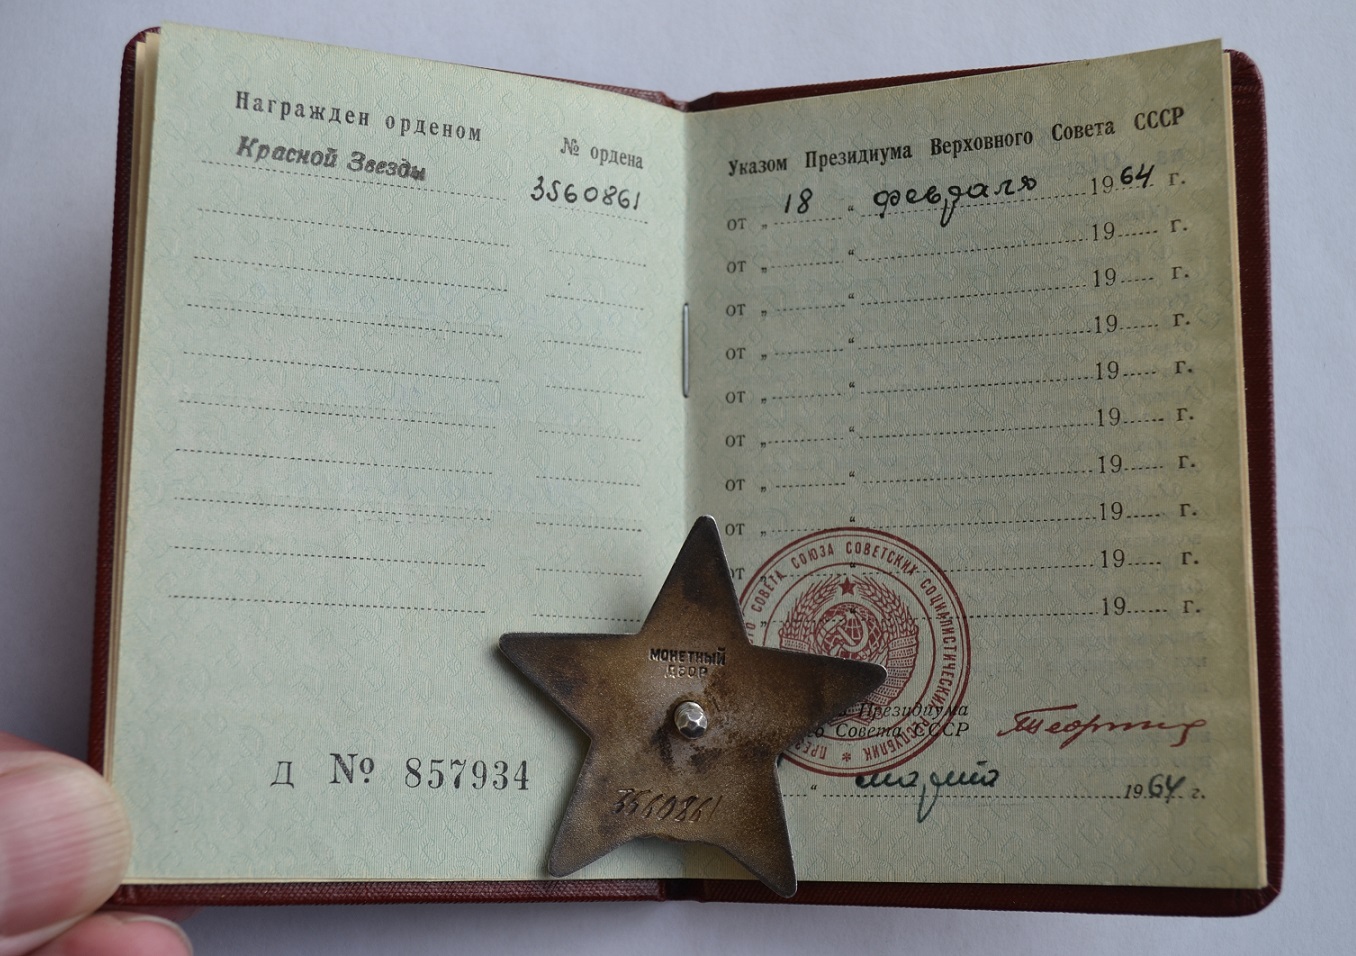 Награжден орденом
№ ордена
Красной Звезды
3560861
Д № 857934
Указом Президиума Верховного Совета СССР
от „ 18 “ февраля 1964 г.
от „ “ 19 г.
от „ “ 19 г.
от „ “ 19 г.
от „ “ 19 г.
от „ “ 19 г.
от „ “ 19 г.
от „ “ 19 г.
от „ “ 19 г.
от „ “ 19 г.
СОВЕТА СОЮЗА СОВЕТСКИХ СОЦИАЛИСТИЧЕСКИХ РЕСПУБЛИК
Президиума
Совета СССР
“ марта 1964 г.
МОНЕТНЫЙ
ДВОР
3560861